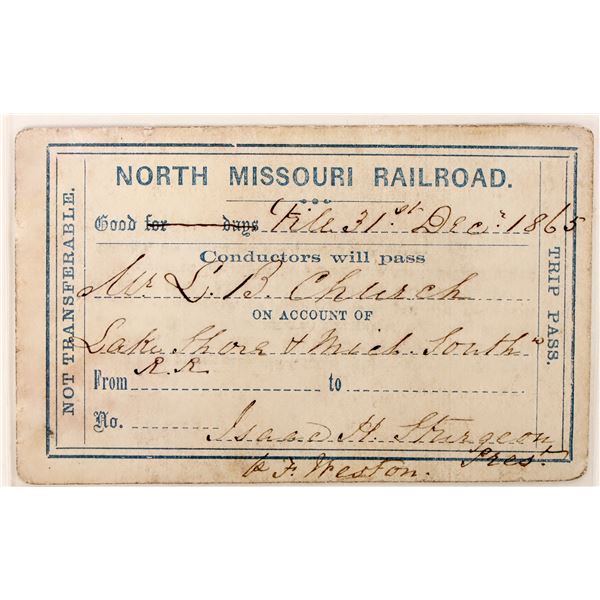 NORTH MISSOURI RAILROAD.
Good for days Till 31st Decr. 1865
Conductors will pass
Mr L. B. Church
ON ACCOUNT OF
Lake Shore & Mich. South n
R. R.
From to
No.
Isaac H. Sturgeon
Prest
F. Weston.
NOT TRANSFERABLE.
TRIP PASS.